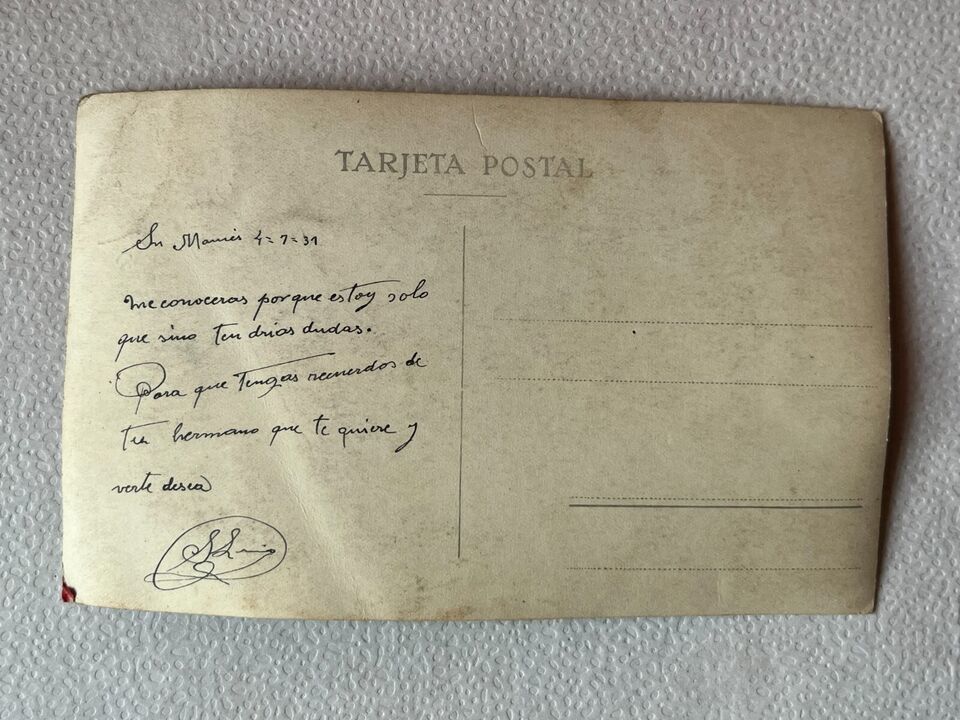 TARJETA POSTAL
Sn Mamés 4=7=31
me conoceras porque estoy solo
que sino tendrias dudas.
Para que tengas recuerdos de
tu hermano que te quiere y
verte desea